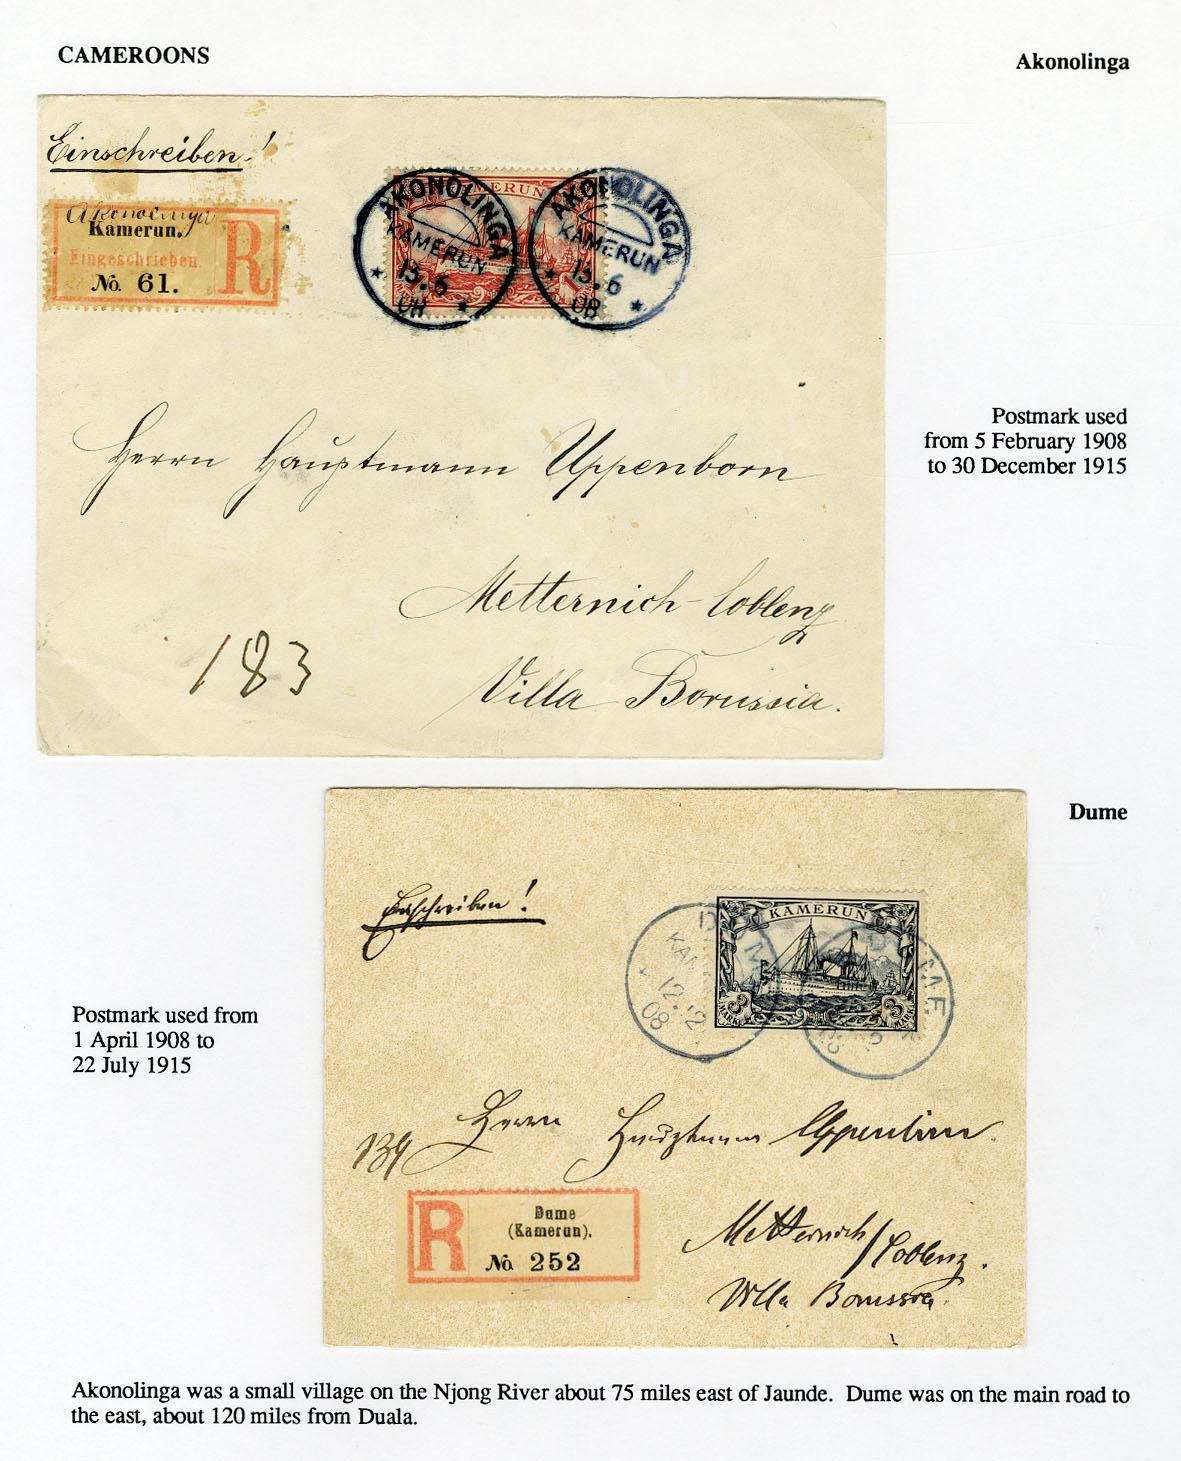 CAMEROONS
Akonolinga
Einschreiben!
Akonolinga
Kamerun.
Eingeschrieben.
No. 61.
R
KAMERUN
1
AKONOLINGA
KAMERUN
13.6
08
AKONOLINGA
KAMERUN
13.6
08
Postmark used
from 5 February 1908
to 30 December 1915
Herrn Hauptmann Uppenborn
Metternich-Coblenz
Villa Borussia.
183
Dume
Einschreiben!
KAMERUN
3 MARK
3 MARK
12.12
08
Postmark used from
1 April 1908 to
22 July 1915
Herrn Hauptmann Uppenborn
139
R
Dume
(Kamerun).
No. 252
Metternich/Coblenz.
Villa Borussia.
Akonolinga was a small village on the Njong River about 75 miles east of Jaunde. Dume was on the main road to
the east, about 120 miles from Duala.